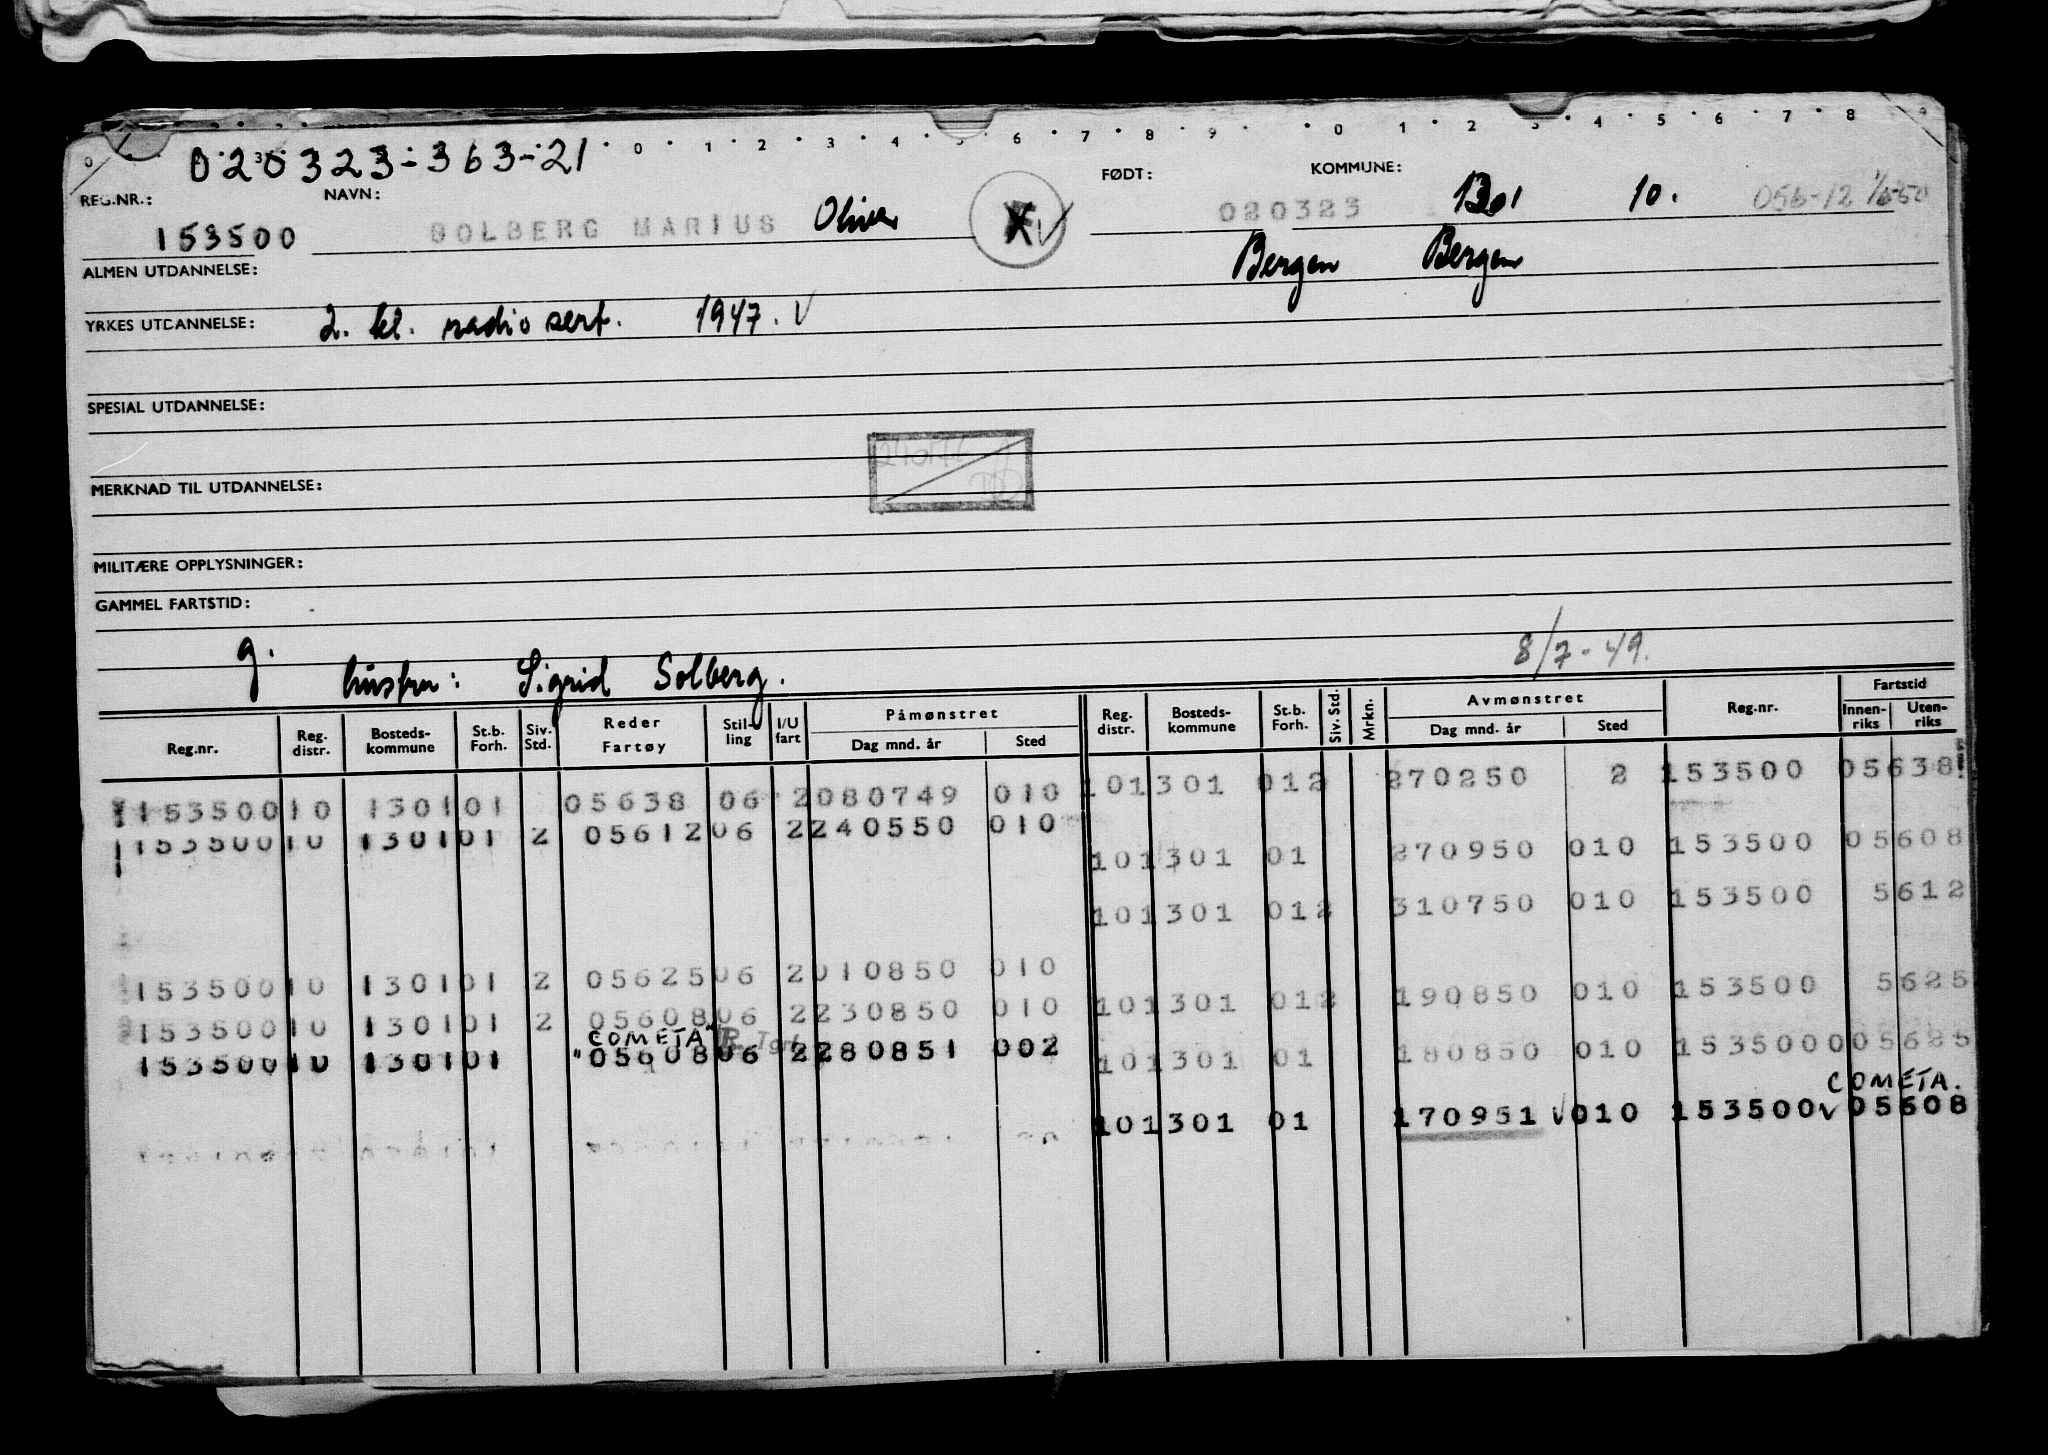 020323-363-21
0 1 2 3 4 5 6 7 8 9 0 1 2 3 4 5 6 7 8 9
REG.NR.: NAVN: FØDT: KOMMUNE:
153500 SOLBERG MARIUS Oliver V 020323 1301 10. 056-12 1/6-50
Bergen Bergen
ALMEN UTDANNELSE:
YRKES UTDANNELSE: 2. kl. radiosert. 1947. V
SPESIAL UTDANNELSE:
MERKNAD TIL UTDANNELSE:
MILITÆRE OPPLYSNINGER:
GAMMEL FARTSTID:
g. hustru: Sigrid Solberg. 8/7-49.
Reg.nr. Reg. distr. Bosteds-kommune St.b. Forh. Siv. Std. Reder Fartøy Stil-ling I/U fart Påmønstret Dag mnd. år Sted Reg. distr. Bosteds-kommune St.b. Forh. Siv. Std. Mrkn. Avmønstret Dag mnd. år Sted Reg.nr. Fartstid Innen-riks Uten-riks
153500 10 1301 01 05638 06 2 080749 010
10 1301 012 270250 2 153500 05638
153500 10 1301 01 2 05612 06 2 240550 010
10 1301 01 270950 010 153500 05608
10 1301 012 310750 010 153500 5612
153500 10 1301 01 2 05625 06 2 010850 010
10 1301 012 190850 010 153500 5625
153500 10 1301 01 2 05608 06 2 230850 010
"COMETA"
153500 10 1301 01 05608 06 2 280851 002
10 1301 01 180850 010 153500 005625
COMETA.
10 1301 01 170951 V 010 153500 V 05608